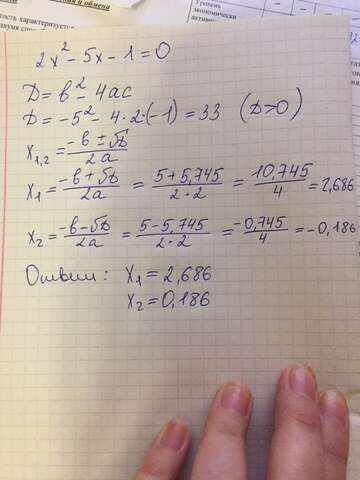 ность характеризуется
двумя спо
и обмена
Уровень
экономически
2x² - 5x - 1 = 0
D = b² - 4ac
D = -5² - 4·2·(-1) = 33 (D>0)
x₁,₂ = (-b ± √D)/2a
x₁ = (-b + √D)/2a = (5 + 5,745)/2·2 = 10,745/4 = 2,686
x₂ = (-b - √D)/2a = (5 - 5,745)/2·2 = -0,745/4 = -0,186
Ответ: x₁ = 2,686
x₂ = 0,186